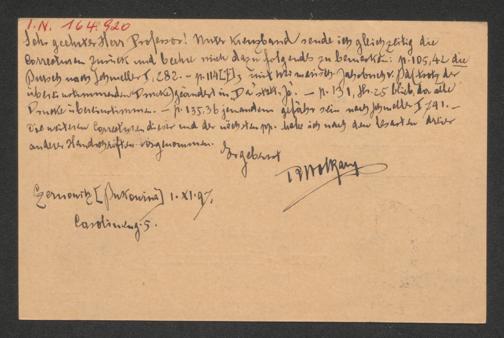 I.N. 164.920
Sehr geehrter Herr Professor! Unter Kreuzband sende ich gleichzeitig die
Correcturen zurück und beehre mich dazu folgendes zu bemerken: p. 105,42 die
Pursch nach Schmeller I. 282. – p. 114 mit Wimanisch der
übereinstimmenden Drucke geändert in Da statt Jo. – p. 131, bleib da alle
Drucke übereinstimmen. – p. 135.36 jemandem gefähr sein nach Schmeller I 741. –
Die weiteren Correcturen dieser und der nächsten pp. habe ich nach den Lesarten dreier
anderer Handschriften vorgenommen.
Ergebenst
Wolkan
Czernowitz [Bukowina] 1. XI. 97.
Carolineng. 5.